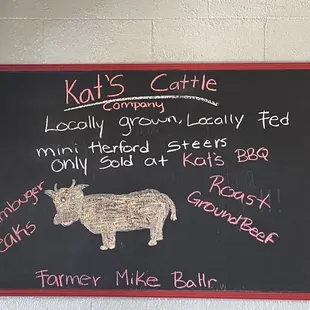 Kat's Cattle
Company
Locally grown, Locally Fed
mini Herford Steers
only Sold at Kat's BBQ
Roast
Ground Beef
Farmer Mike